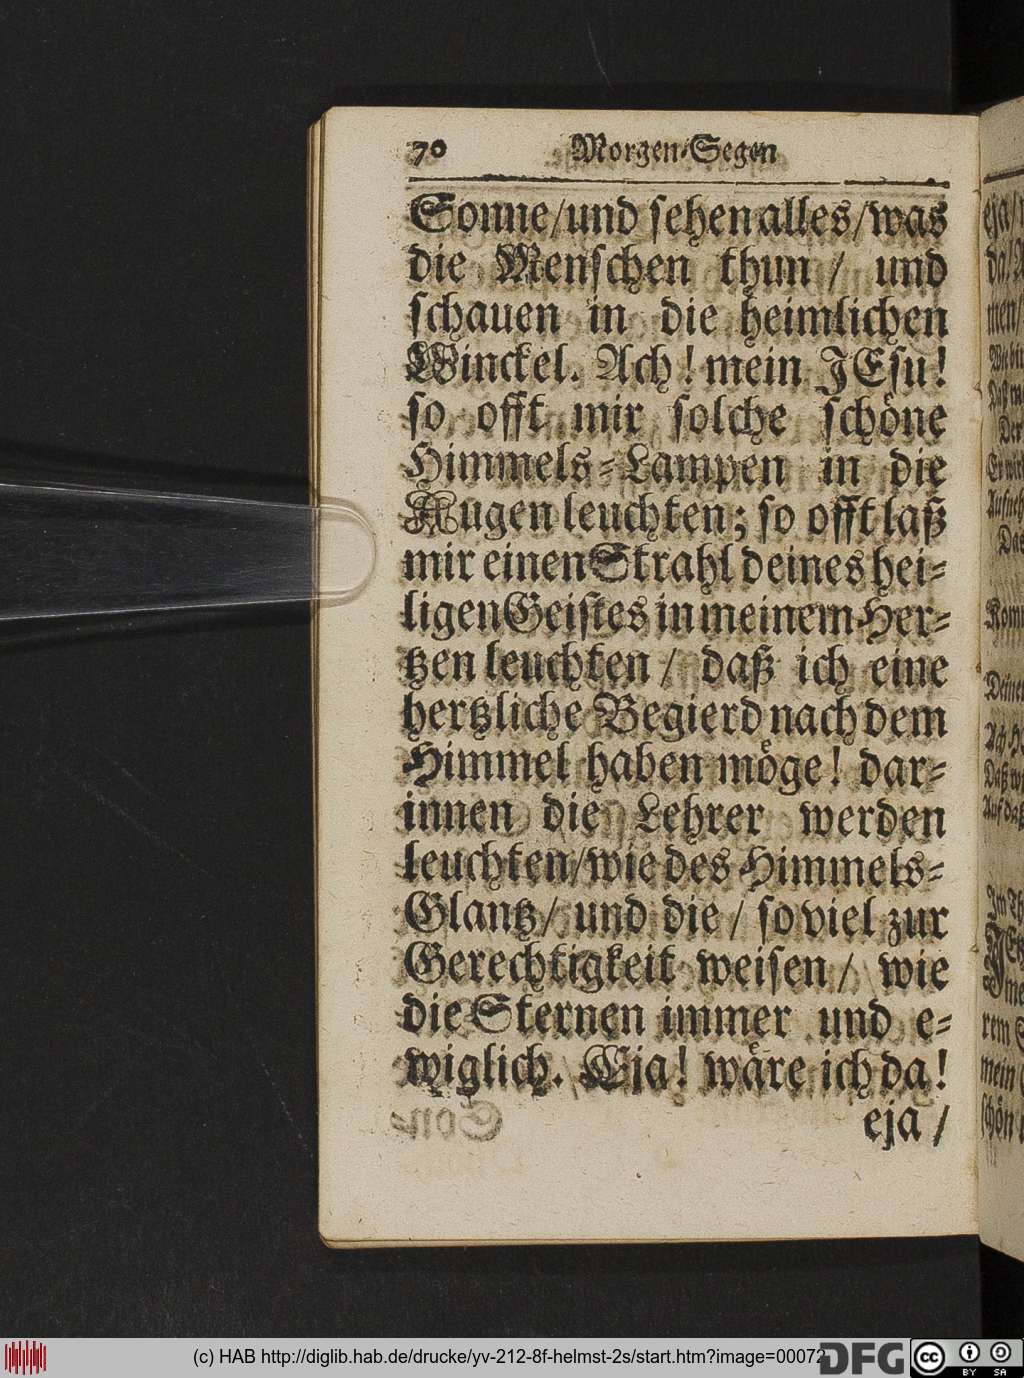 70 Morgen-Segen
Sonne/und sehen alles/was
die Menschen thun / und
schauen in die heimlichen
Winckel. Ach! mein JEsu!
so offt mir solche schöne
Himmels-Lampen in die
Augen leuchten; so offt laß
mir einen Strahl deines hei-
ligen Geistes in meinem Her-
tzen leuchten / daß ich eine
hertzliche Begierd nach dem
Himmel haben möge! dar-
innen die Lehrer werden
leuchten/wie des Himmels-
Glantz/ und die / so viel zur
Gerechtigkeit weisen / wie
die Sternen immer und e-
wiglich. Eja! wäre ich da!
eja /
(c) HAB http://diglib.hab.de/drucke/yv-212-8f-helmst-2s/start.htm?image=00072
DFG
cc BY SA